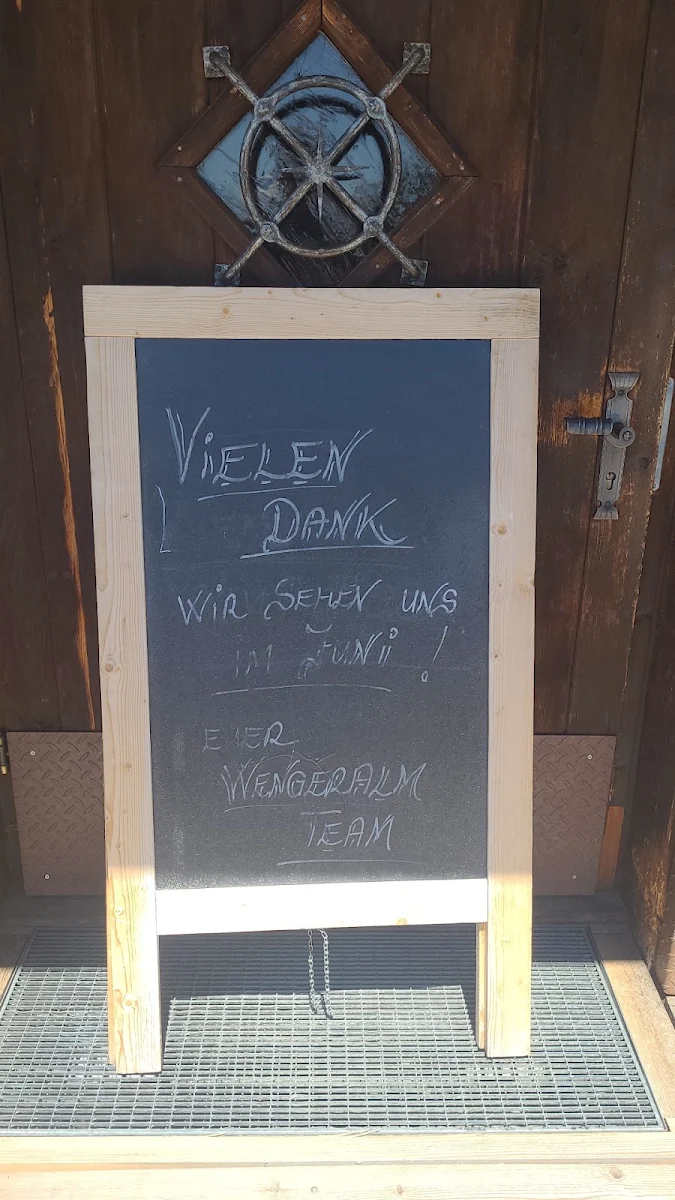 VIELEN
DANK
WIR SEHEN UNS
IM JUNI !
EUER
WENGERALM
TEAM